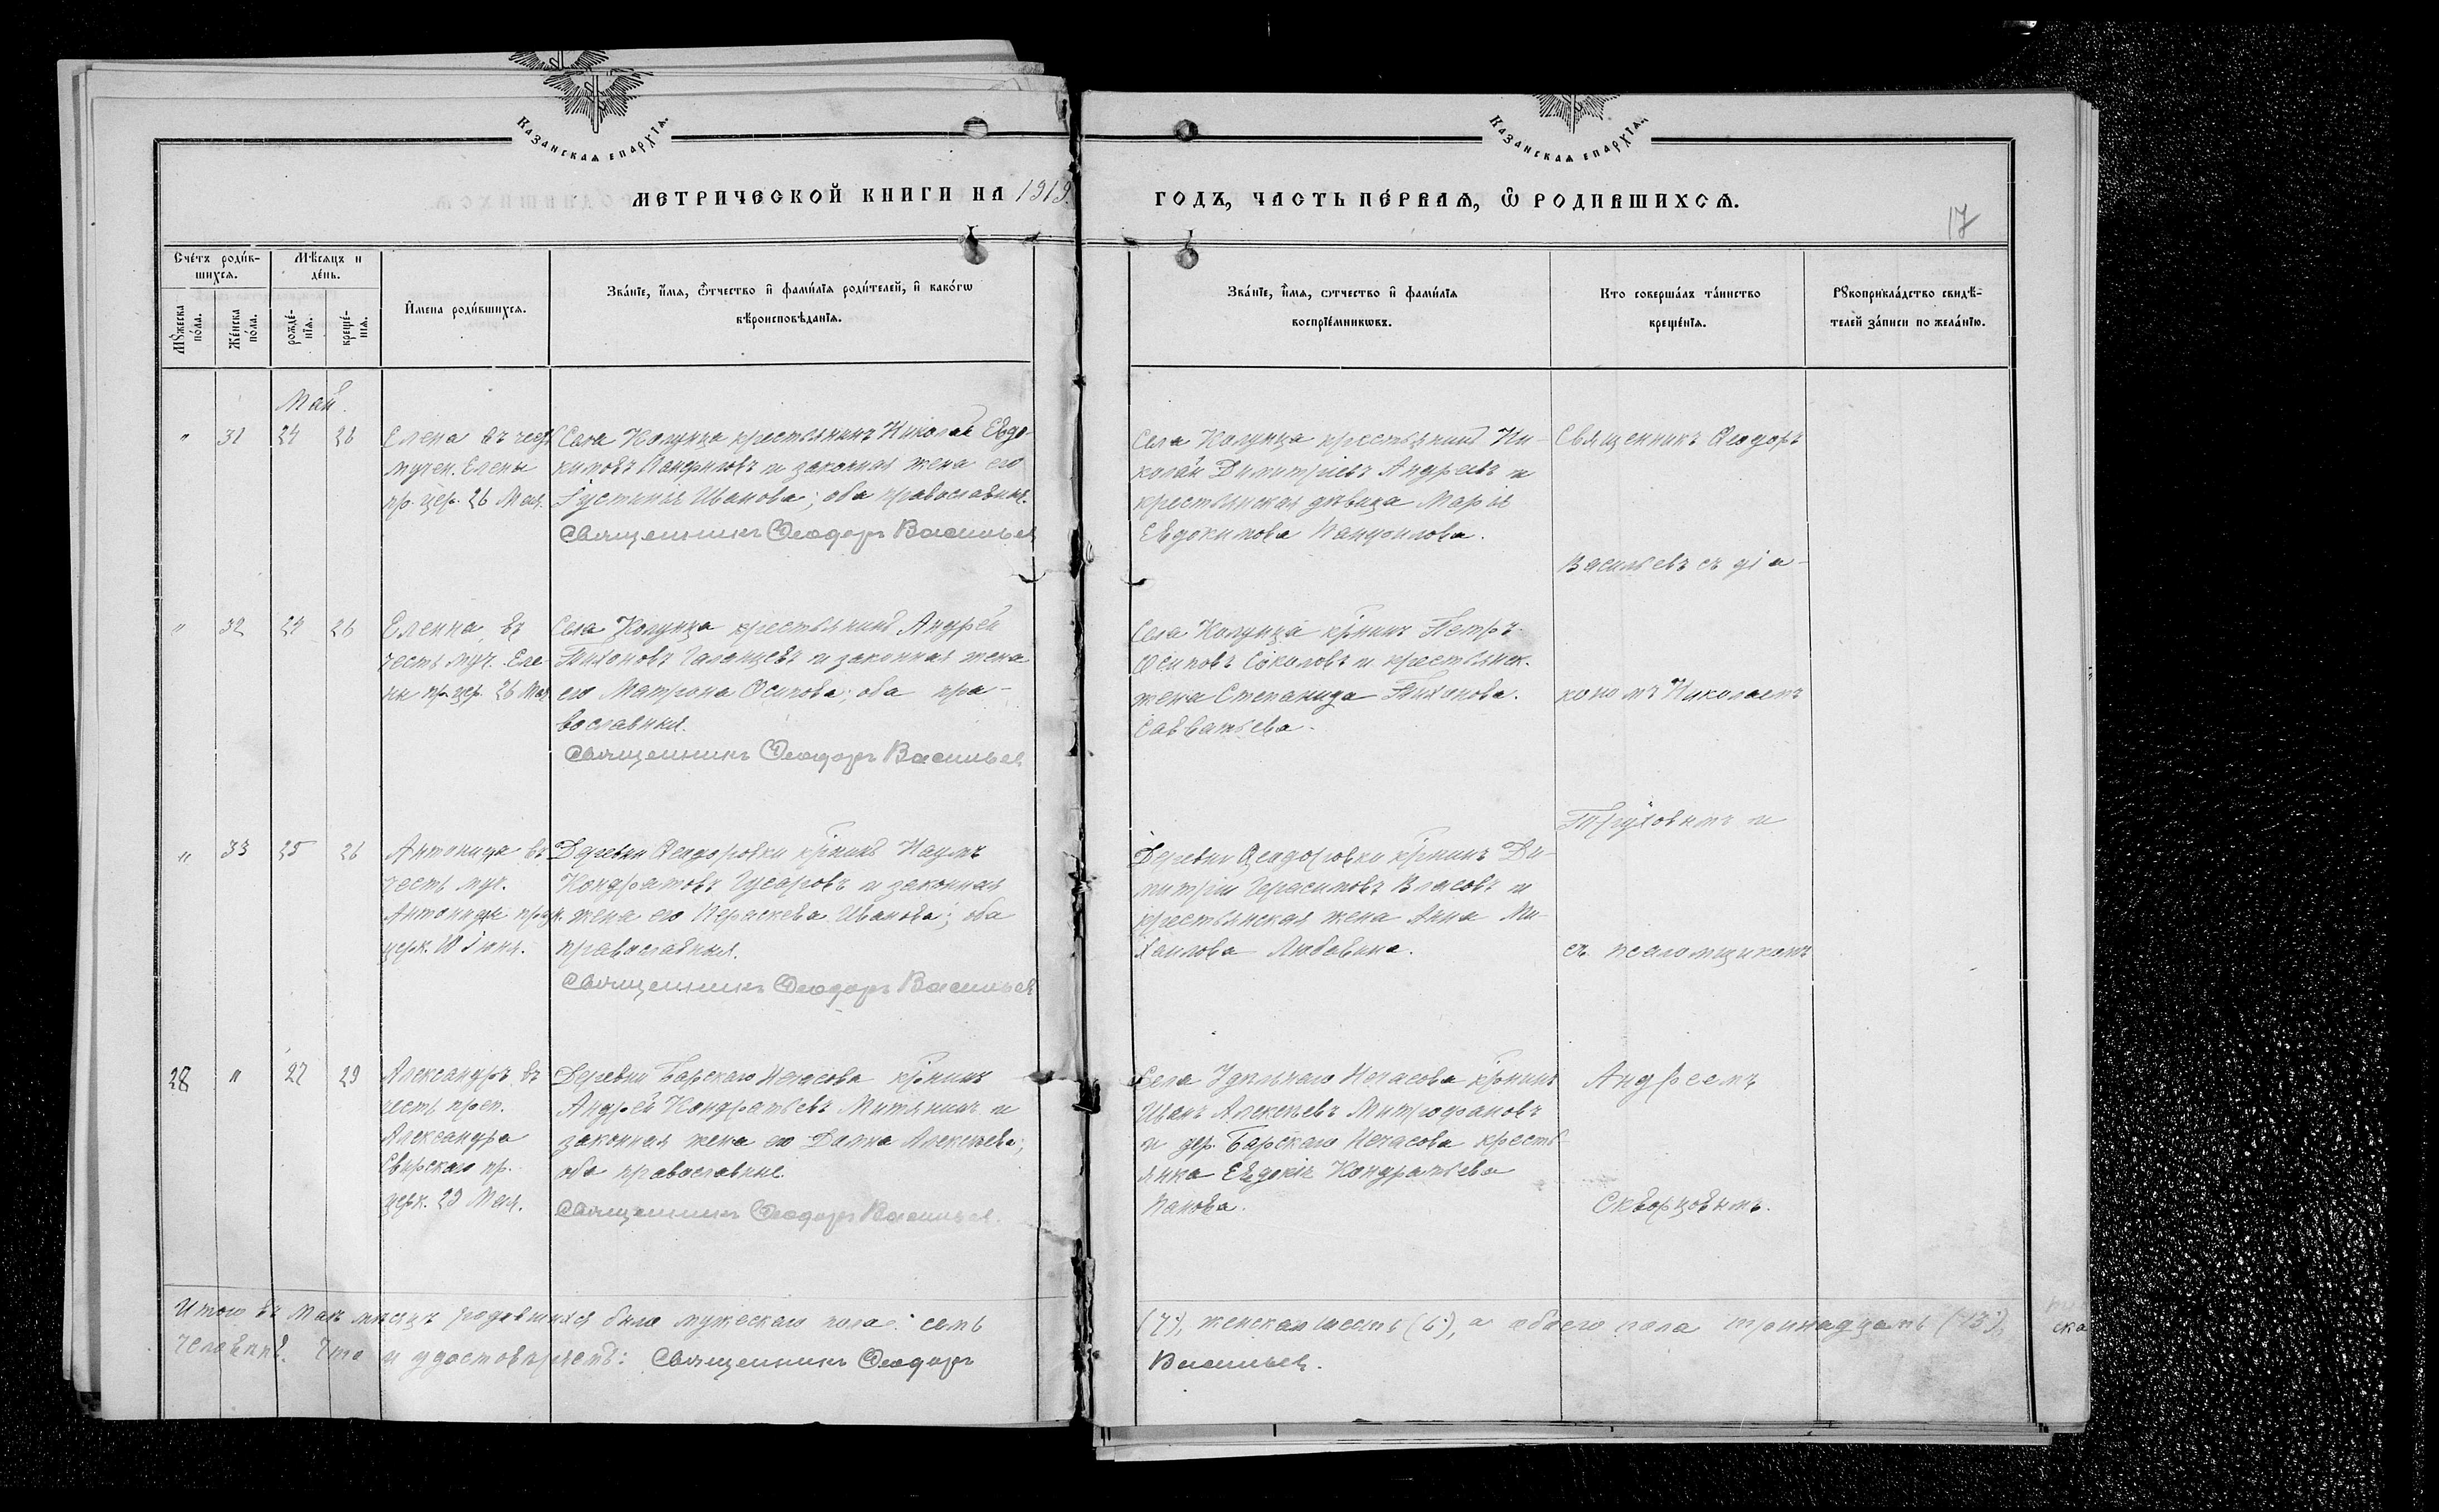 КАЗАНСКАѦ ЕПАРХІѦ.
КАЗАНСКАѦ ЕПАРХІѦ.
МЕТРИЧЕСКОЙ КНИГИ НА 1919
ГОДЪ, ЧАСТЬ ПЕ́РВАѦ, Ѽ РОДИВШИХСѦ.
17
Сче́тъ роди́в-
шихсѧ.
Мѣ́сѧцъ и
де́нь.
Мꙋ́жеска
по́ла.
Же́нска
по́ла.
рожде́-
нїѧ.
креще́-
нїѧ.
И҆мена роди́вшихсѧ.
Зва́нїе, и҆́мѧ, ѻ҆́тчество и҆ фами́лїѧ роди́телей, и҆ како́гѡ
вѣроисповѣ́данїѧ.
Зва́нїе, и҆́мѧ, ѻтчество и҆ фами́лїѧ
воспрїе́мникѡвъ.
Кто соверша́лъ та́инство
креще́нїѧ.
Рꙋкоприкла́дство свидѣ́-
телей за́писи по жела́нїю.
Май.
" 31 24 26 Елена въ честь
мучен. Елены
пр. цер. 26 Мая.
Села Колунца крестьянинъ Николай Евдо-
кимовъ Панфиловъ и законная жена его
Іустинія Иванова; оба православные.
Священникъ Ѳеодоръ Васильев
Села Колунца крестьянинъ Ни-
колай Димитріевъ Андреевъ и
крестьянская дѣвица Марія
Евдокимова Панфилова.
Священникъ Ѳеодоръ
Васильевъ съ діа-
" 32 24 26 Еленна, въ
честь муч. Еле-
ны пр. цер. 26 Мая
Села Колунца крестьянинъ Андрей
Тихоновъ Галанцевъ и законная жена
его Матрона Осипова; оба пра-
вославныя.
Священникъ Ѳеодоръ Васильев
Села Колунца кр-нинъ Петръ
Осиповъ Соколовъ и крестьянск.
жена Степанида Тихонова
Савватьева.
кономъ Николаемъ
" 33 25 26 Антонида въ
честь муч.
Антониды праз.
церк. 10 Іюня.
Деревни Ѳеодоровки кр-нинъ Наумъ
Кондратовъ Гусаровъ и законная
жена его Параскева Иванова; оба
православныя.
Священникъ Ѳеодоръ Васильев
Деревни Ѳеодоровки кр-нинъ Ди-
митрій Герасимовъ Власовъ и
крестьянская жена Анна Ми-
хаилова Любавина.
и
съ псаломщикомъ
28 " 27 29 Александръ, въ
честь преп.
Александра
Свирскаго пр.
церк. 29 Мая.
Деревни Барскаго Нечасова кр-нинъ
Андрей Кондратьевъ Митянинъ и
законная жена его Дарья Алексѣева;
оба православные.
Священникъ Ѳеодоръ Васильев.
Села Удѣльнаго Нечасова кр-нинъ
Иванъ Алексѣевъ Митрофановъ
и дер. Барскаго Нечасова кресть-
янка Евдокія Кондратьева
Панова.
Андреемъ
Скворцовымъ.
Итого въ Маѣ мѣсяцѣ родившихся было мужескаго пола семь
(7), женскаго шесть (6), а обоего пола тринадцать (13)
человѣкъ. Что и удостовѣряетъ: Священникъ Ѳеодоръ
Васильев.